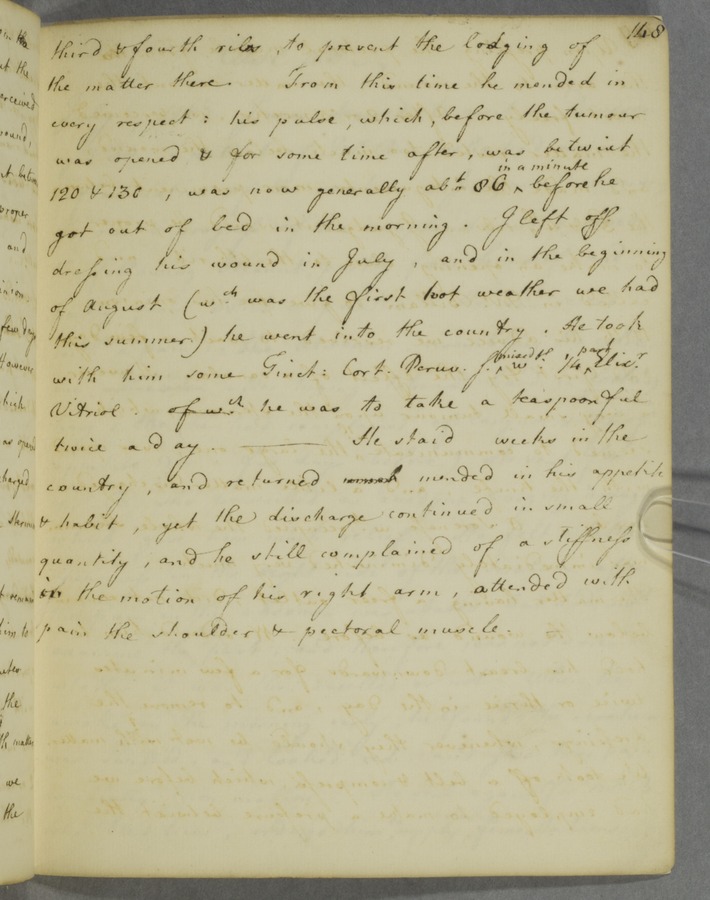 148
third & fourth ribs, to prevent the lodging of
the matter there. From this time he mended in
every respect: his pulse, which, before the tumour
was opened & for some time after, was betwixt
in a minute
120 & 130, was now generally abt. 86 ^ before he
got out of bed in the morning. I left off
dressing his wound in July, and in the beginning
of August (wch. was the first hot weather we had
this summer) he went into the country. He took
with him some Tinct: Cort. Peruv. mixed wth. 1/4 part Elixr.
Vitriol. of wch. he was to take a teaspoonful
twice a day. ——— He staid weeks in the
country, and returned much mended in his appetite
& habit, yet the discharge continued in small
quantity, and he still complained of a stiffness
in the motion of his right arm, attended with
pain the shoulder & pectoral muscle.